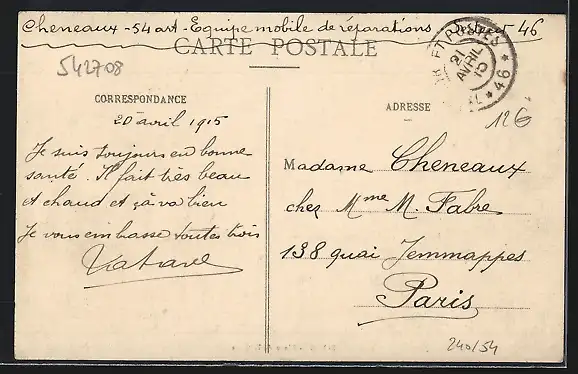 Cheneaux - 54 art - Equipe mobile de réparations Secteur 46
CARTE POSTALE
ET POSTES
21
AVRIL
15
* 46 *
542708
CORRESPONDANCE
20 avril 1915
Je suis toujours en bonne
santé. Il fait très beau
et chaud et çà va bien
Je vous embrasse toutes trois
ADRESSE
12G
Madame Cheneaux
chez Mme M. Fabre
138 quai Jemmappes
Paris
240/54